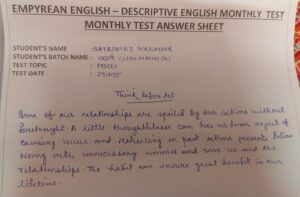 EMPYREAN ENGLISH – DESCRIPTIVE ENGLISH MONTHLY TEST
MONTHLY TEST ANSWER SHEET
STUDENT'S NAME : GAYATRI MAJUMDER
STUDENT'S BATCH NAME : CLERK MAINS
TEST TOPIC : PRECIS
TEST DATE :
Think before Act
Some of our relationships are spoiled by our actions without
forethought. A little thoughtfulness can free us from regret of
causing issues and reflecting on past actions prevents future
wrong acts, unnecessary worries and save us and the
relationships. The habit can ensure great benefit in our
lifetime.